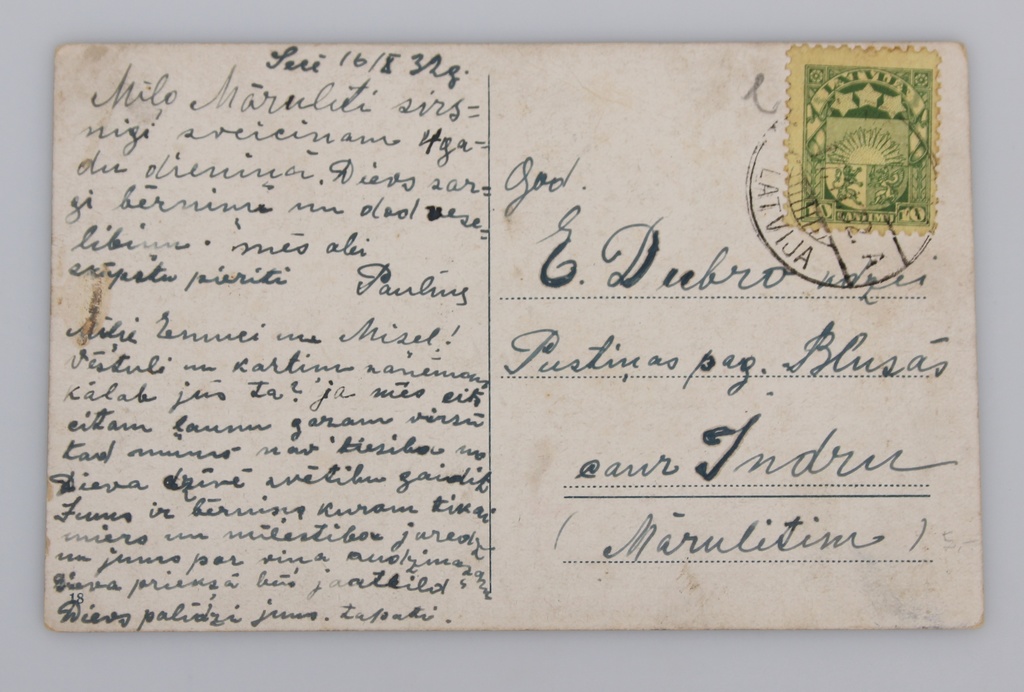 16/X 32g.
Mīļo Mārulīti sirs=
nīgi sveicinam 4 ga=
du dieniņā. Dievs sar=
gi bērniņu un dod vese=
lībiņu. mēs abi
Pauliņš
Mīļie un Misel!
Vēstuli un kartiņu saņēmām
kālab jūs tā? ja mēs cits
citam ļaunu garam virsū
tad mums nav tiesība no
Dieva dzīvē svētību gaidīt
Jums ir bērniņš kuram tikai
miers un mīlestība jāredz
un jums par viņa
Dieva priekšā būs jāatbild
Dievs palīdzi jums. tapati.
18
God.
E. Dubro
Pustiņas pag. Blusās
caur Indru
(Mārulītim)
LATVIJA
SANTIMU
10
LATVIJA
5.-